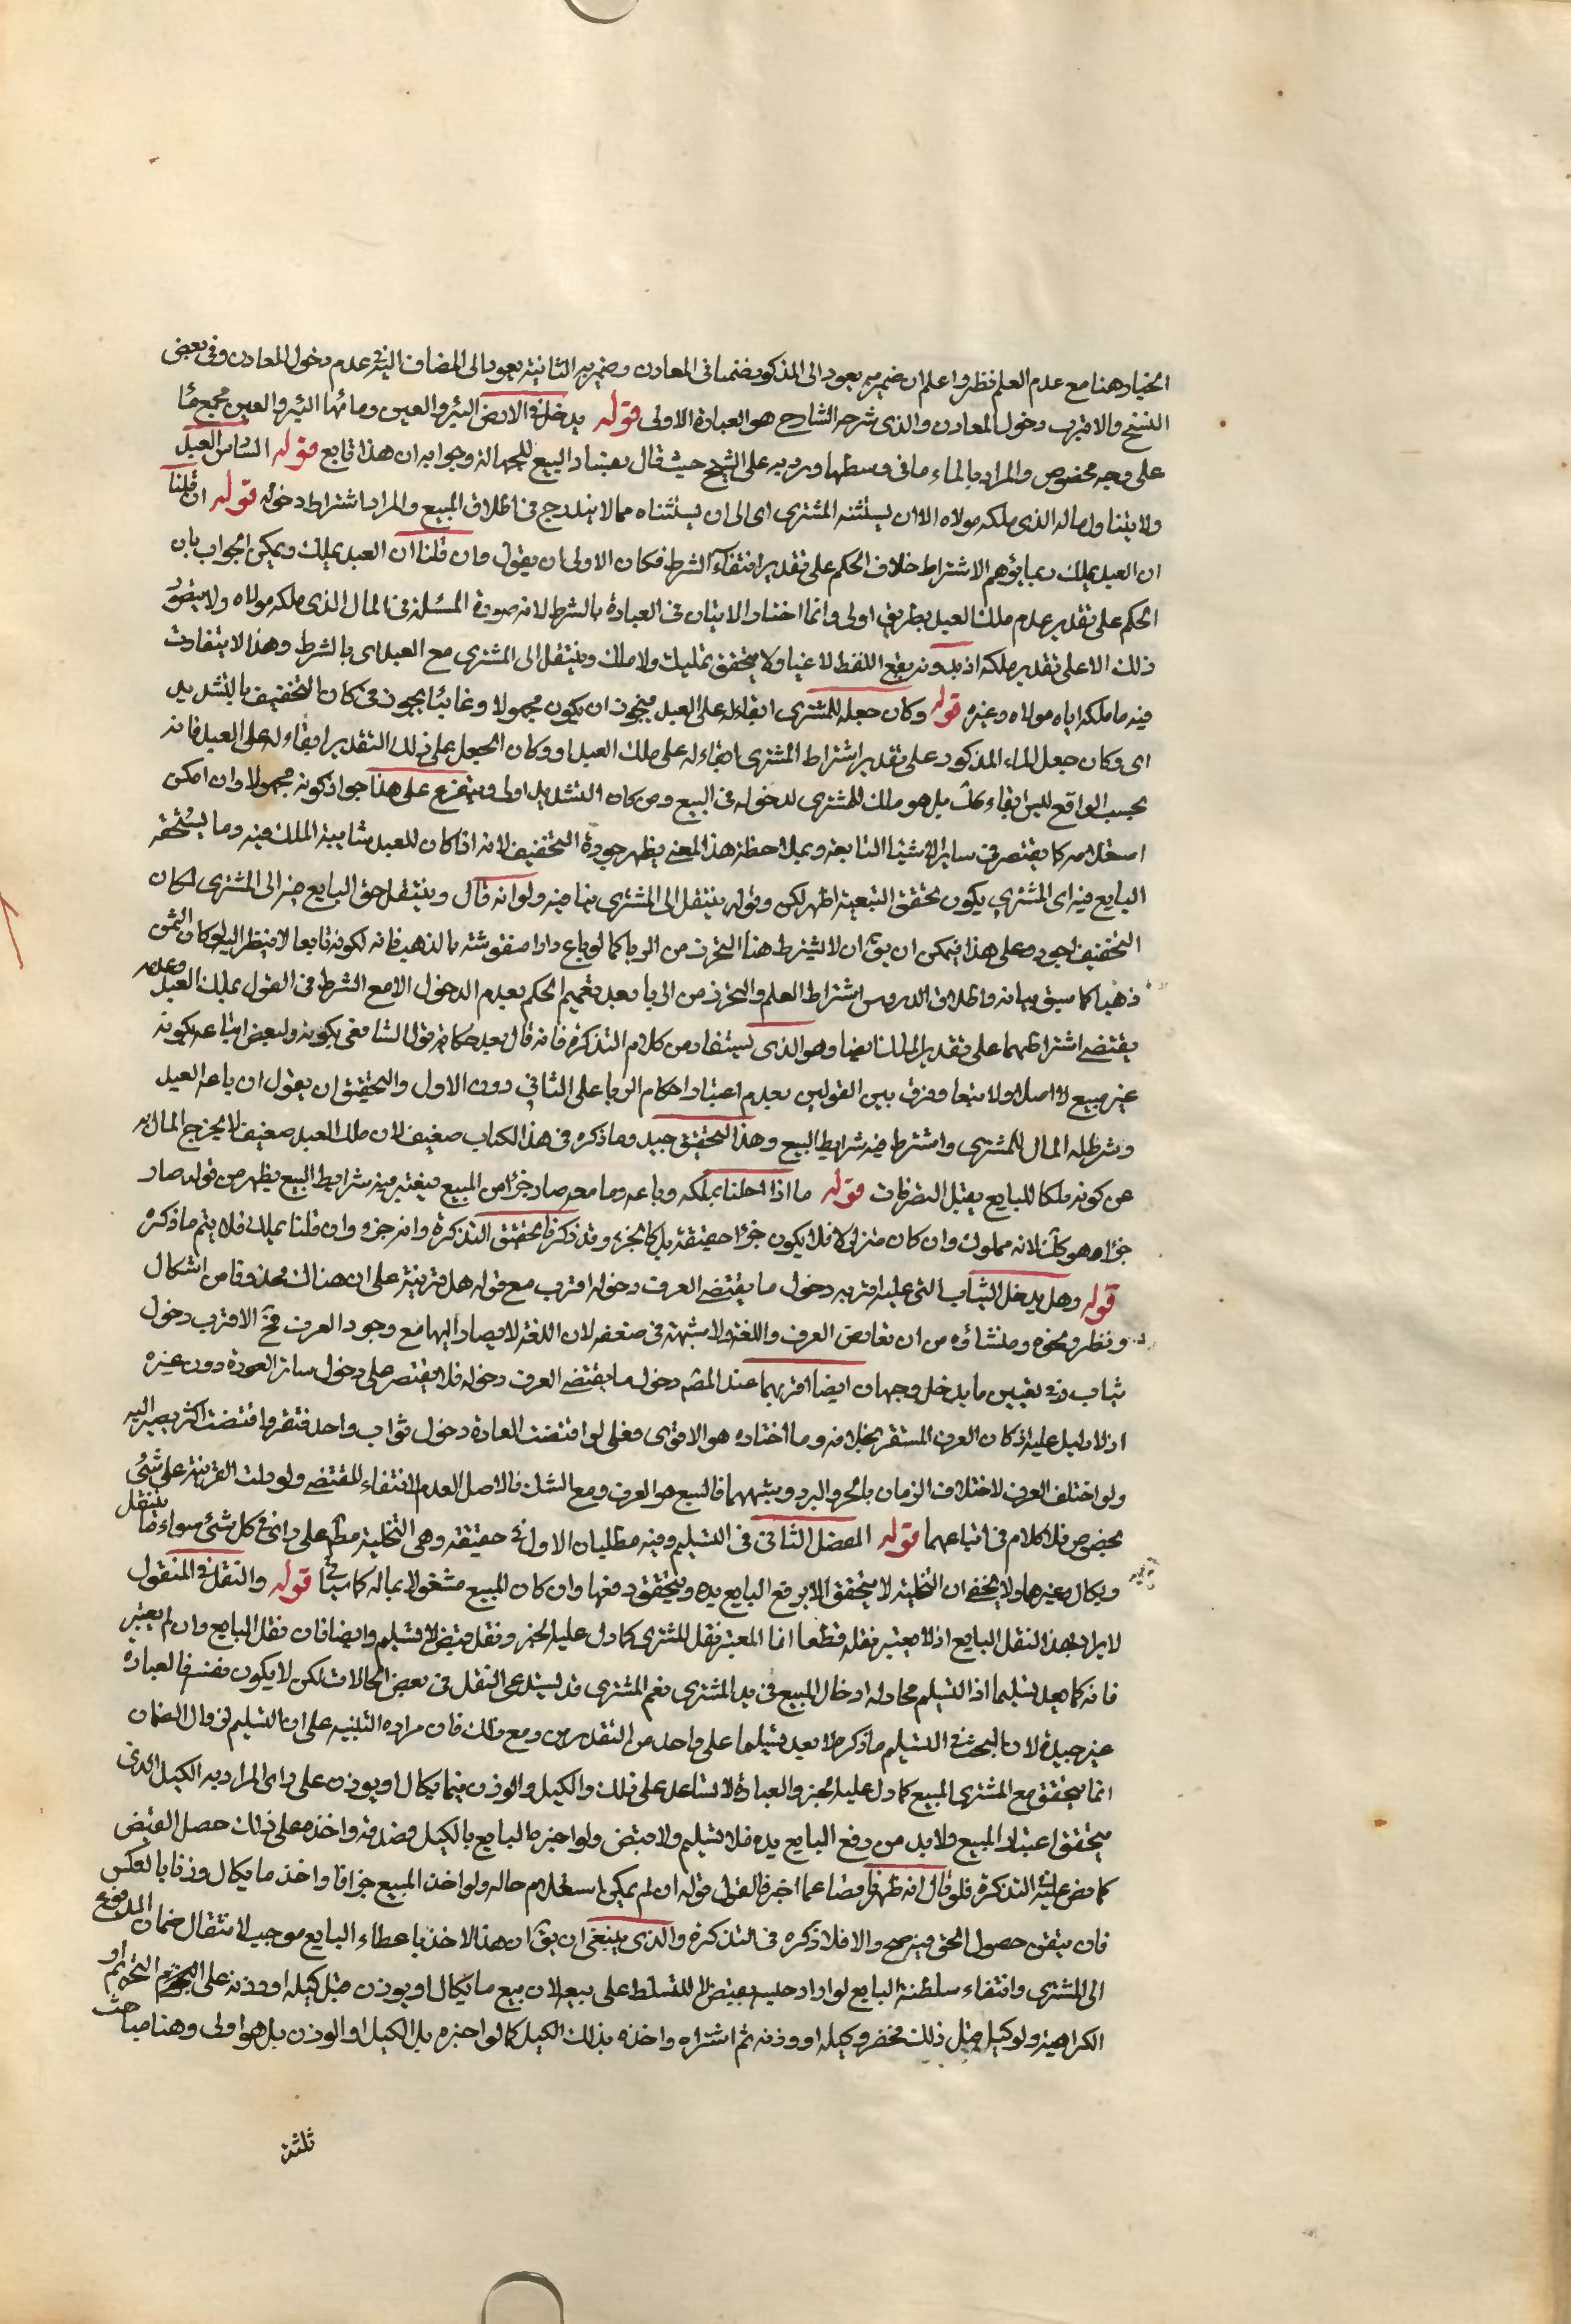 الخيار هنا مع عدم العلم نظر واعلم ان ضمير به يعود الى المذكور ضمنا في المعادن وضمير به الثانية يعود الى المضاف اليه في عدم دخول المعادن وفي بعض
النسخ والاقرب دخول المعادن والذي شرحه الشارح هو العبارة الاولى قوله يدخل في الارض البئر والعين ومائهما البئر والعين مجمع ماء
على وجه مخصوص والمراد بالماء ما في وسطها ورد به على الشيخ حيث قال بفساد البيع للجهالة وجوابه ان هذا تابع قوله السادس العبد
ولا يتناول ماله الذي ملكه مولاه الا ان يستثنه المشتري اي الى ان يستثناه مما لا يندرج في اطلاق المبيع والمراد اشتراط دخوله قوله ان قلنا
ان العبد يملك ربما يوهم الاشتراط خلاف الحكم على تقدير انتفاء الشرط فكان الاولى ان يقول وان قلنا ان العبد يملك ويمكن الجواب بان
الحكم على تقدير عدم ملك العبد بطريق اولى وانما اختار الاتيان في العبارة بالشرط لانه صورة المسئلة في المال الذي ملكه مولاه ولا يتصور
ذلك الا على تقدير ملكه اذ بدونه يقع اللفظ لاغيا ولا يتحقق تمليك ولا ملك وينتقل الى المشتري مع العبد اي بالشرط وهذا لا يتفاوت
فيه ما ملكه اياه مولاه وغيره قوله وكان جعله للمشتري ابقاء له على العبد فيجوز ان يكون مجهولا وغائبا يجوز في كان التخفيف بالتشديد
اي وكان جعل الماء المذكور على تقدير اشتراط المشتري ابقاء له على ملك العبد او وكان الجعل على ذلك التقدير ابقاء له على العبد فانه
بحسب الواقع ليس ابقاء كك بل هو ملك للمشتري لدخوله في البيع ومن كان التشديد اولى ويتفرع على هذا جواز كونه مجهولا وان امكن
استعلامه كما يقتصر في ساير الاشياء التابعة وبملاحظة هذا المعنى يظهر جودة التخفيف لانه اذا كان للعبد شايبة الملك فيه وما يستحقه
البايع فيه اي المشتري يكون تحقق التبعية اظهر لكن وقوله ينتقل الى المشتري ينافيه ولو انه قال وينتقل حق البايع منه الى المشتري لكان
التخفيف اجود وعلى هذا فيمكن ان يق ان لا يشترط هنا التحرز من الربا كما لو باع دارا منقوشة بالذهب فانه لكونه تابعا لا ينظر اليه لو كان الثمن
ذهبا كما سيق بيانه واطلاق الدروس اشتراط العلم والتحرز من الربا بعد تعميم الحكم بعدم الدخول الا مع الشرط في القول بملك العبد وعدمه
يقتضي اشتراطهما على تقدير الملك ايضا وهو الذي يستفاد من كلام التذكرة فانه قال بعد حكاية قول الشافعي بكونه ولبعض اتباعه بكونه
غير مبيع لا اصلا ولا تبعا وفرق بين القولين بعدم اعتبار احكام الربا على الثاني دون الاول والتحقيق ان يقول ان باعه العبد
وشرط له المال للمشتري واشترط فيه شرايط البيع وهذا التحقيق جيد وما ذكره في هذا الكتاب ضعيف لان ملك العبد ضعيف لا يخرج المال به
عن كونه ملكا للبايع يقبل التصرفات قوله ما اذا احلنا بملكه وباعه وما معه صار جزءا من المبيع فيعتبر فيه شرايط البيع يظهر من قوله صار
جزءا وهو كك لانه مملوك وان كان منزلي كا فلا يكون جزءا حقيقة بل كالجزء وقد ذكر في تحقيق التذكرة وانه جزء وان قلنا يملك فلا يتم ما ذكره
قوله وهل يدخل الثياب التي عليه اقربه دخول ما يقتضي العرف دخوله اقرب مع قوله هل قرينة على ان هناك محذوفا من اشكال
ونظر ونحوه ومنشاؤه من ان تعارض العرف واللغة ولا شبهة في ضعفه لان اللغة لا يصار اليها مع وجود العرف فح الاقرب دخول
ثياب وفي تعيين ما يدخل وجهان ايضا اقربهما عند المص دخول ما يقتضي العرف دخوله فلا يقتصر على دخول ساتر العورة دون غيره
اذ لا دليل عليه اذ كان العرف المستقر بخلافه وما اختاره هو الاقوى فعلى لو اقتضت العادة دخول ثواب واحد فتقر واقتضت اكثر يصير اليه
ولو اختلف العرف لاختلاف الزمان بالحر والبرد وشبههما فالتبع هو العرف ومع الشك فالاصل العدم لانتفاء المقتضي ولو دلت القرينة على شيء
بخصوص فلا كلام في اتباعهما قوله الفصل الثاني في التسليم وفيه مطلبان الاول في حقيقته وهي التخلية مطم على راي في كل شيء سواء ما ينتقل
ويكال وغيرها ولا يخفى ان التخلية لا يتحقق الا برفع البايع يده ويتحقق دفعها وان كان المبيع مشغولا بماله كما سياتي قوله والنقل في المنقول
لا يراد بهذا النقل البايع اذ لا يعتبر نقله قطعا انما المعتبر نقل المشتري كما دل عليه الخبر ونقل قبض لا تسليم وايضا فان نقل البايع وان لم يعتبر
فانه كما يعد تسليما اذا التسليم محاوله ادخال المبيع في يد المشتري نعم المشتري قد يستدعي النقل في بعض الحالات لكن لا يكون نفسه فالعبارة
غير جيدة لان البحث في التسليم ما ذكره لا يعد تسليما على واحد من التقديرين ومع ذلك فان مراده التنبيه على ان التسليم في زوال الضمان
انما يتحقق مع المشتري المبيع كما دل عليه الخبر والعبارة لا تساعد على ذلك والكيل والوزن فيما يكال او يوزن على راي المراد به الكيل الذي
يتحقق اعتبار المبيع ولا بد من رفع البايع يده فلا تسليم ولا قبض ولو اخبره البايع بالكيل فصدقه واخذه على ذلك حصل القبض
كما نص عليه في التذكرة فلو قال انه ظهر ناقصا عما اخبر فالقول قوله ان لم يمكن استعلام حاله ولو اخذ المبيع جزافا واخذ ما يكال وزنا بالعكس
فان تيقن حصول الحق فيه صح والا فلا ذكره في التذكرة والذي ينبغي ان يق ان هذا الاخذ باعطاء البايع موجب لانتقال ضمان المدفوع
الى المشتري وانتفاء سلطنة البايع لو اراد حبسه بقبض لا للتسلط على بيعه لان بيع ما يكال او يوزن قبل كيله او وزنه على التحريم او
الكراهية ولو كيل قبل ذلك فحضر وكيله او وزنه ثم اشتراه واخذه بذلك الكيل كما لو اخبره بل الكيل او الوزن بل هو اولى وهنا مباحث
ثلثة